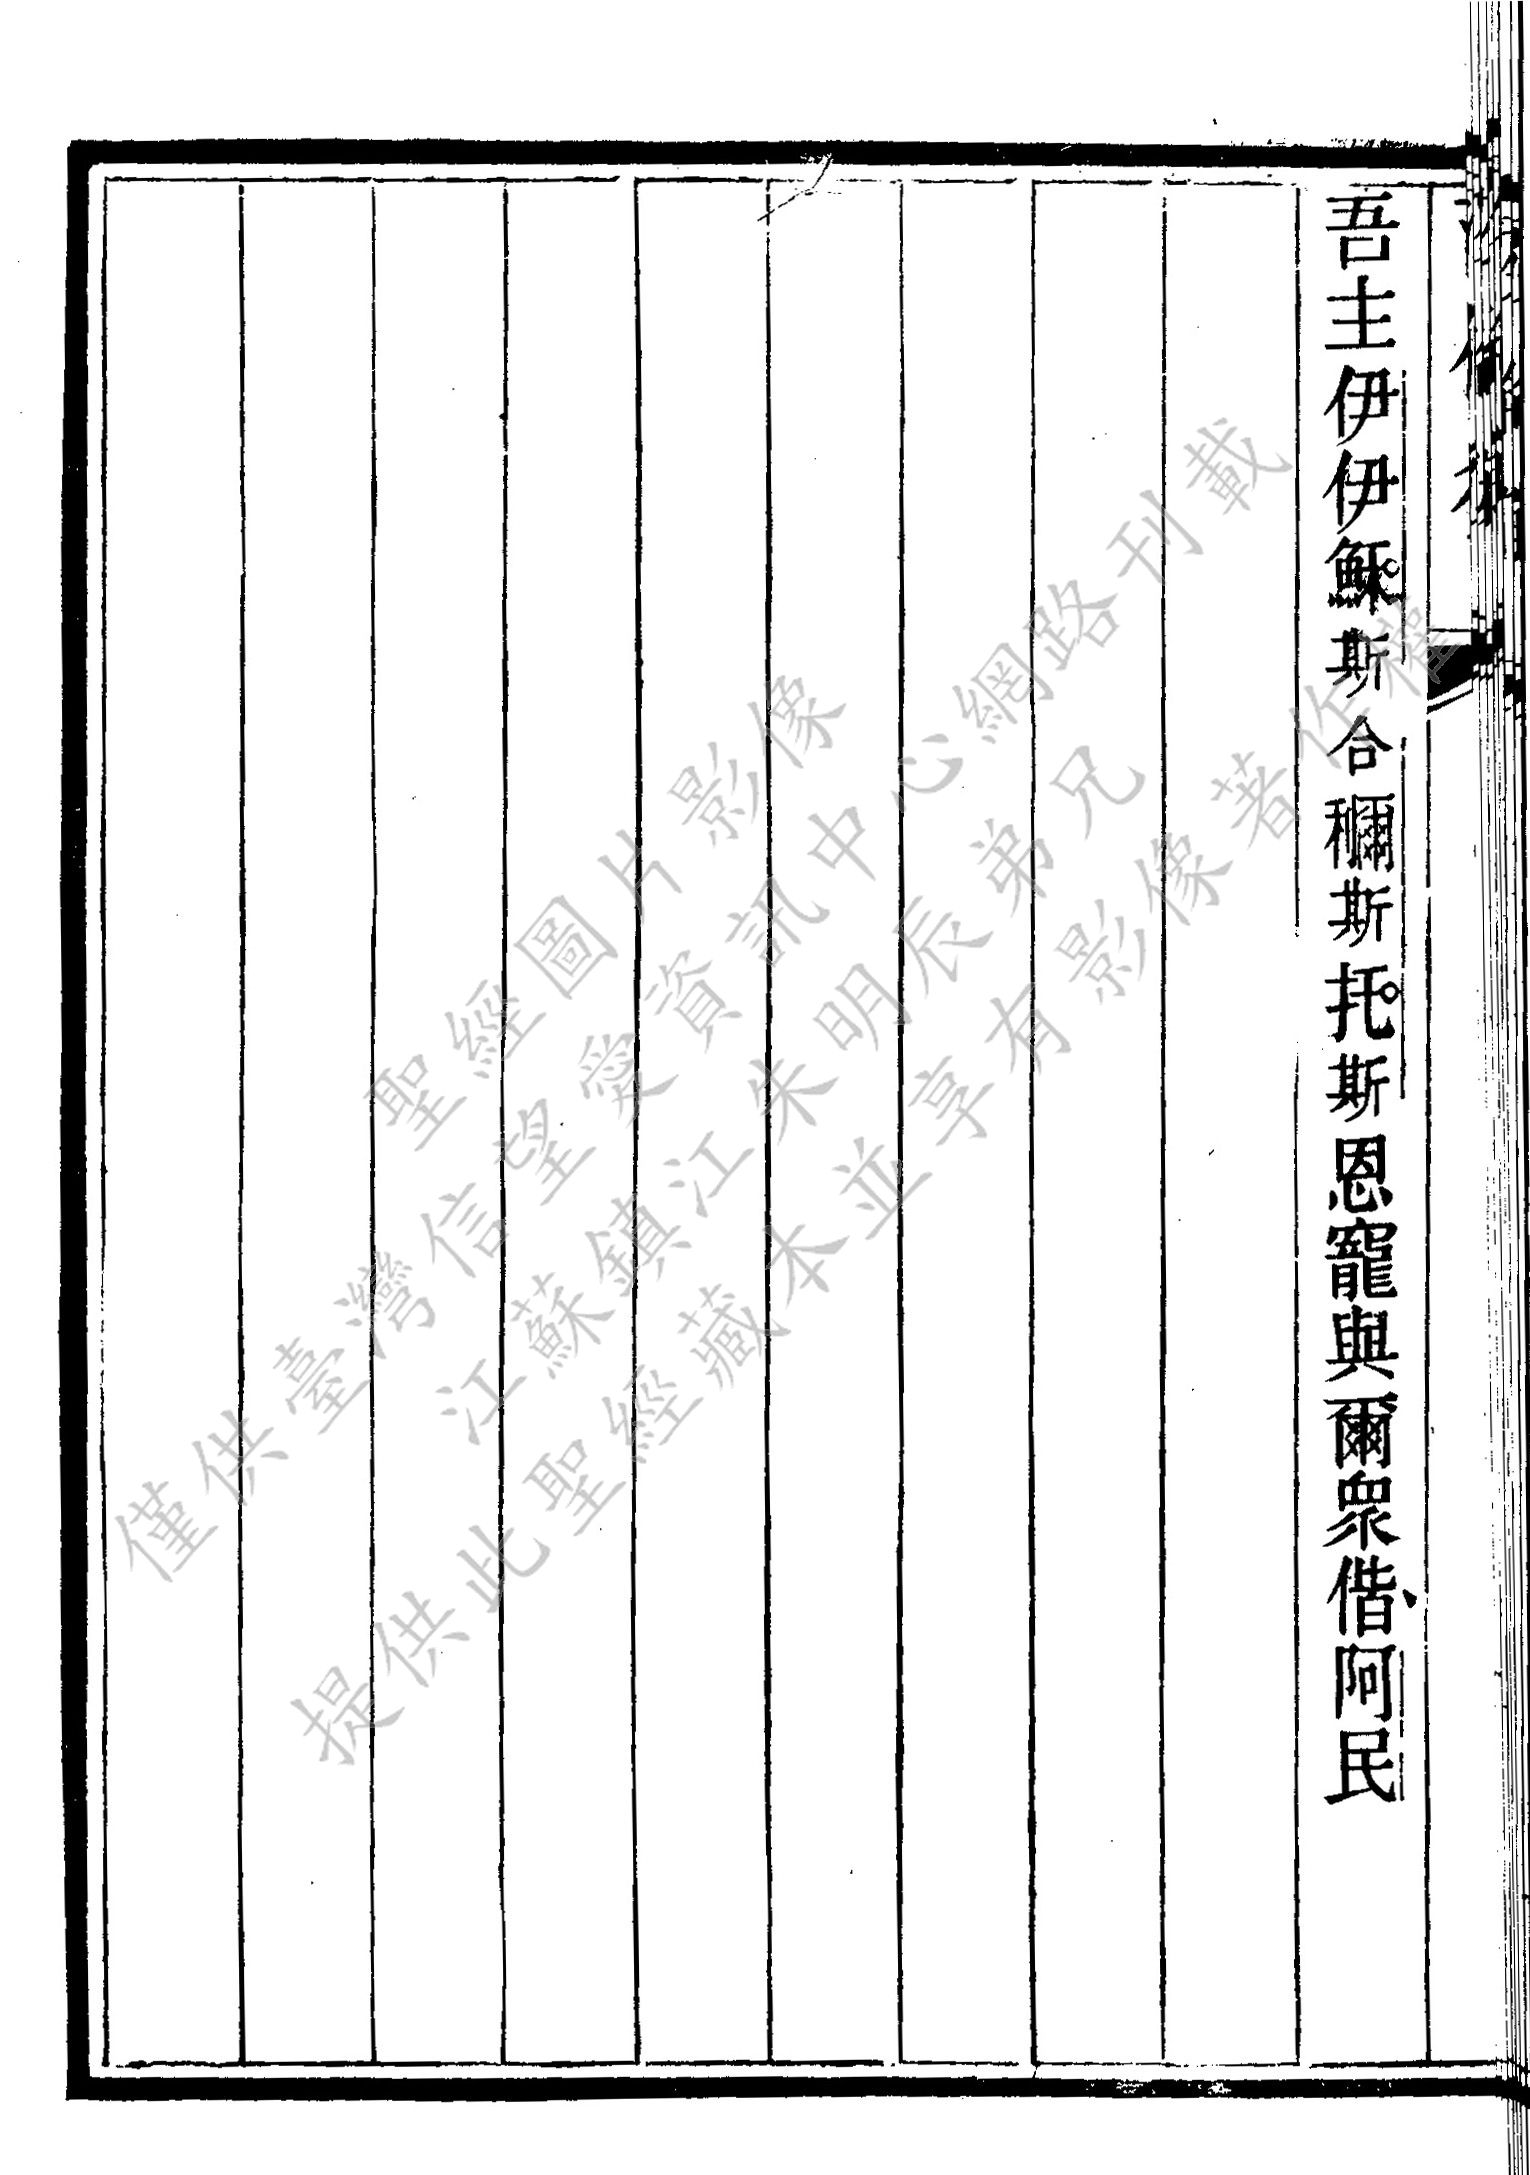 吾主伊伊穌斯合穪斯托斯恩寵與爾衆偕、阿民
聖經圖片影像
僅供臺灣信望愛資訊中心網路刊載
江蘇鎮江朱明辰弟兄
提供此聖經藏本並享有影像著作權